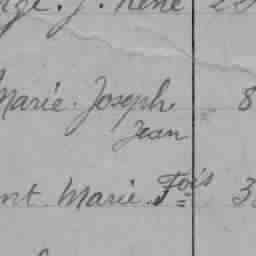 J. René
Marie. Joseph 8
Jean
nt Marie. Fois 3